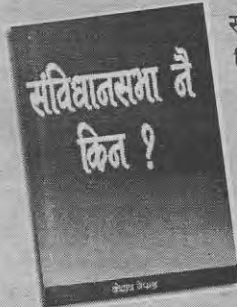 संविधानसभा नै
किन ?